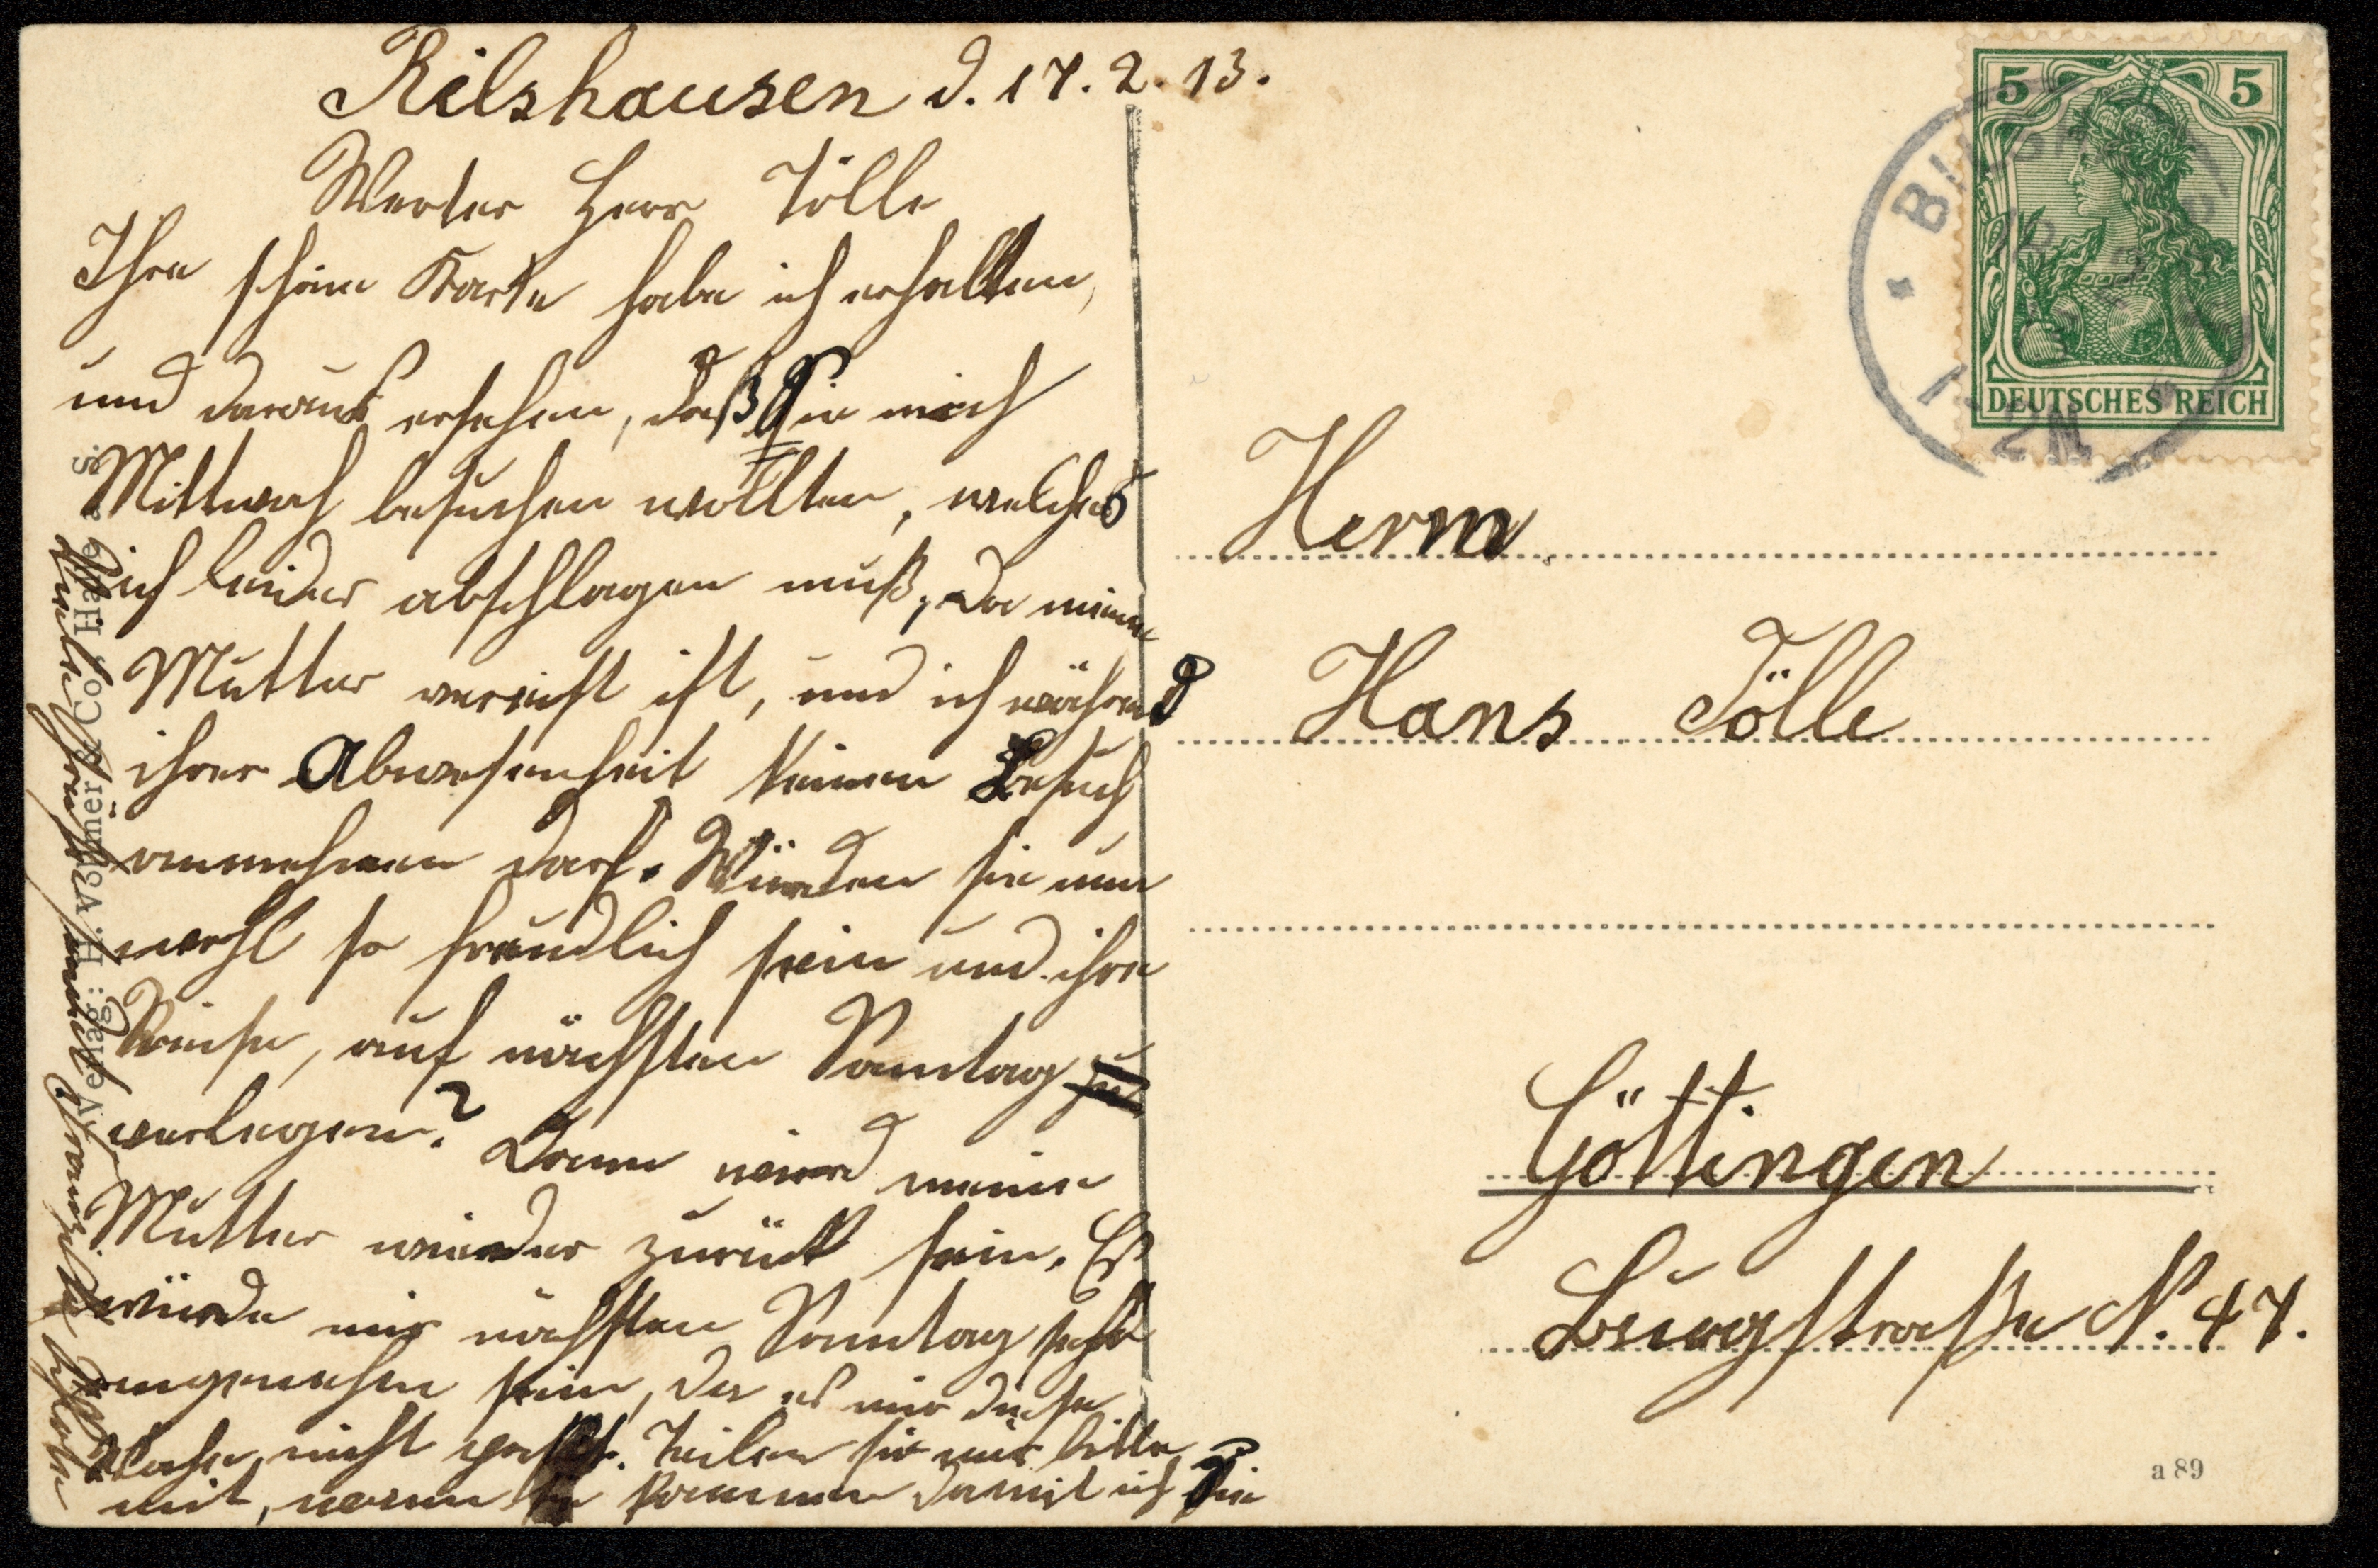 Rilshausen d. 17. 2. 13.
Werter Herr Tölle
Ihre schöne Karte habe ich erhalten,
und daraus ersehen, daß Sie mich
Mittwoch besuchen wollten, welches
ich leider abschlagen muß, da meine
Mutter verreist ist, und ich während
ihrer Abwesenheit keinen Besuch
annehmen darf. Würden sie nun
wohl so freundlich sein und ihre
Reise, auf nächsten Sonntag zu
verlegen? Dann wird meine
Mutter wieder zurück sein. Es
würde mir nächsten Sonntag sehr
angenehm sein, da es mir diese
Woche nicht paßt. Teilen sie mir bitte
mit, wann sie kommen damit ich Sie
Verlag: H. Vollmer & Co., Halle a. S.
DEUTSCHES REICH
5 5
Herrn
Hans Tölle
Göttingen
Burgstraße N. 47.
a 89